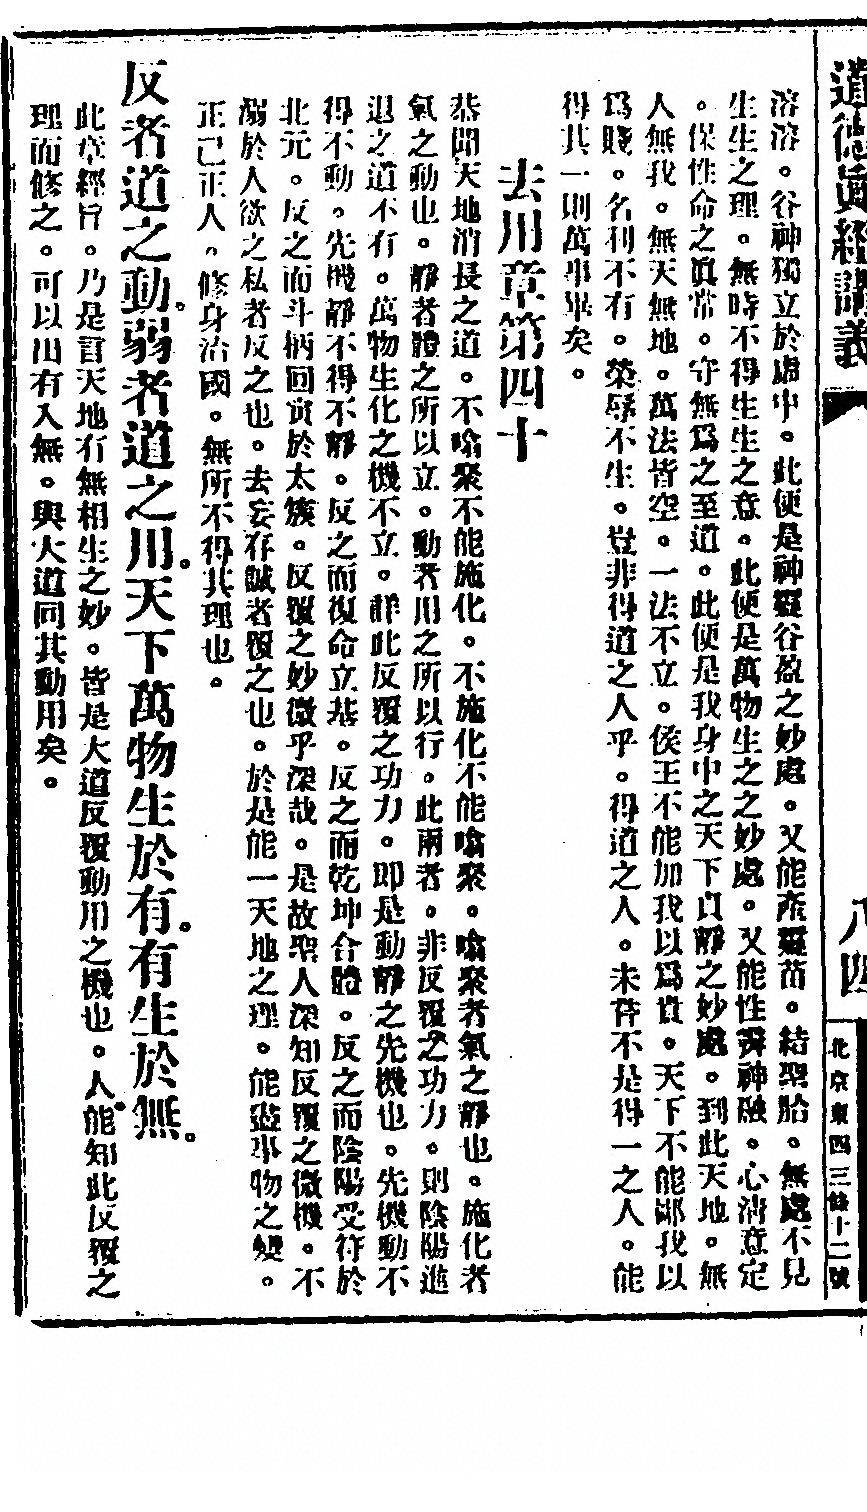 道德眞經講義
八四
北京東四三條十二號
溶溶。谷神獨立於虛中。此便是神靈谷盈之妙處。又能產靈苗。結聖胎。無處不見
生生之理。無時不得生生之意。此便是萬物生之之妙處。又能性露神融。心淸意定
。保性命之眞常。守無爲之至道。此便是我身中之天下貞靜之妙處。到此天地。無
人無我。無天無地。萬法皆空。一法不立。侯王不能加我以爲貴。天下不能鄙我以
爲賤。名利不有。榮辱不生。豈非得道之人乎。得道之人。未甞不是得一之人。能
得其一則萬事畢矣。
去用章第四十
恭聞天地消長之道。不噏聚不能施化。不施化不能噏聚。噏聚者氣之靜也。施化者
氣之動也。靜者體之所以立。動者用之所以行。此兩者。非反覆之功力。則陰陽進
退之道不有。萬物生化之機不立。詳此反覆之功力。卽是動靜之先機也。先機動不
得不動。先機靜不得不靜。反之而復命立基。反之而乾坤合體。反之而陰陽受符於
北元。反之而斗柄回寅於太簇。反覆之妙微乎深哉。是故聖人深知反覆之微機。不
溺於人欲之私者反之也。去妄存誠者覆之也。於是能一天地之理。能盡事物之變。
正己正人。修身治國。無所不得其理也。
反者道之動。弱者道之用。天下萬物生於有。有生於無。
此章經旨。乃是言天地有無相生之妙。皆是大道反覆動用之機也。人能知此反覆之
理而修之。可以出有入無。與大道同其動用矣。